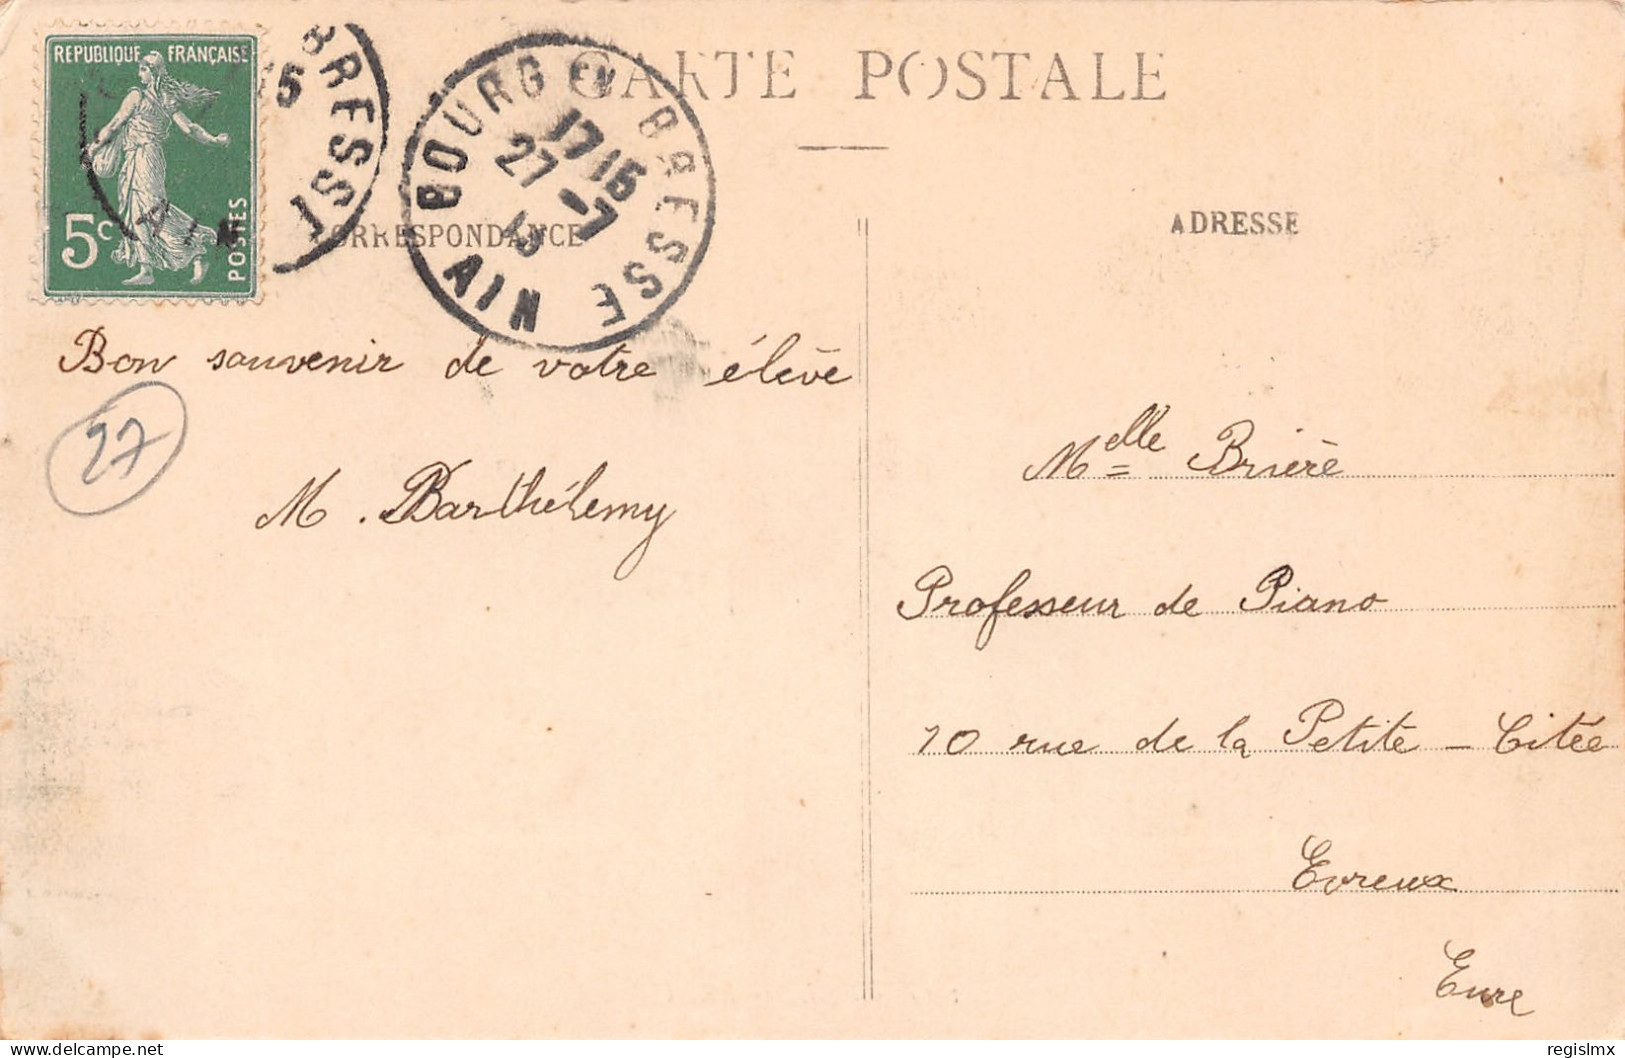 REPUBLIQUE FRANÇAISE
5c
POSTES
15
BRESSE
AIN
BOURG EN BRESSE
17 15
27 -7
15
AIN
CARTE POSTALE
CORRESPONDANCE
ADRESSE
Bon souvenir de votre élève
27
M. Barthélemy
Melle Brière
Professeur de Piano
10 rue de la Petite - Citée
Evreux
Eure
regislmx
delcampe.net